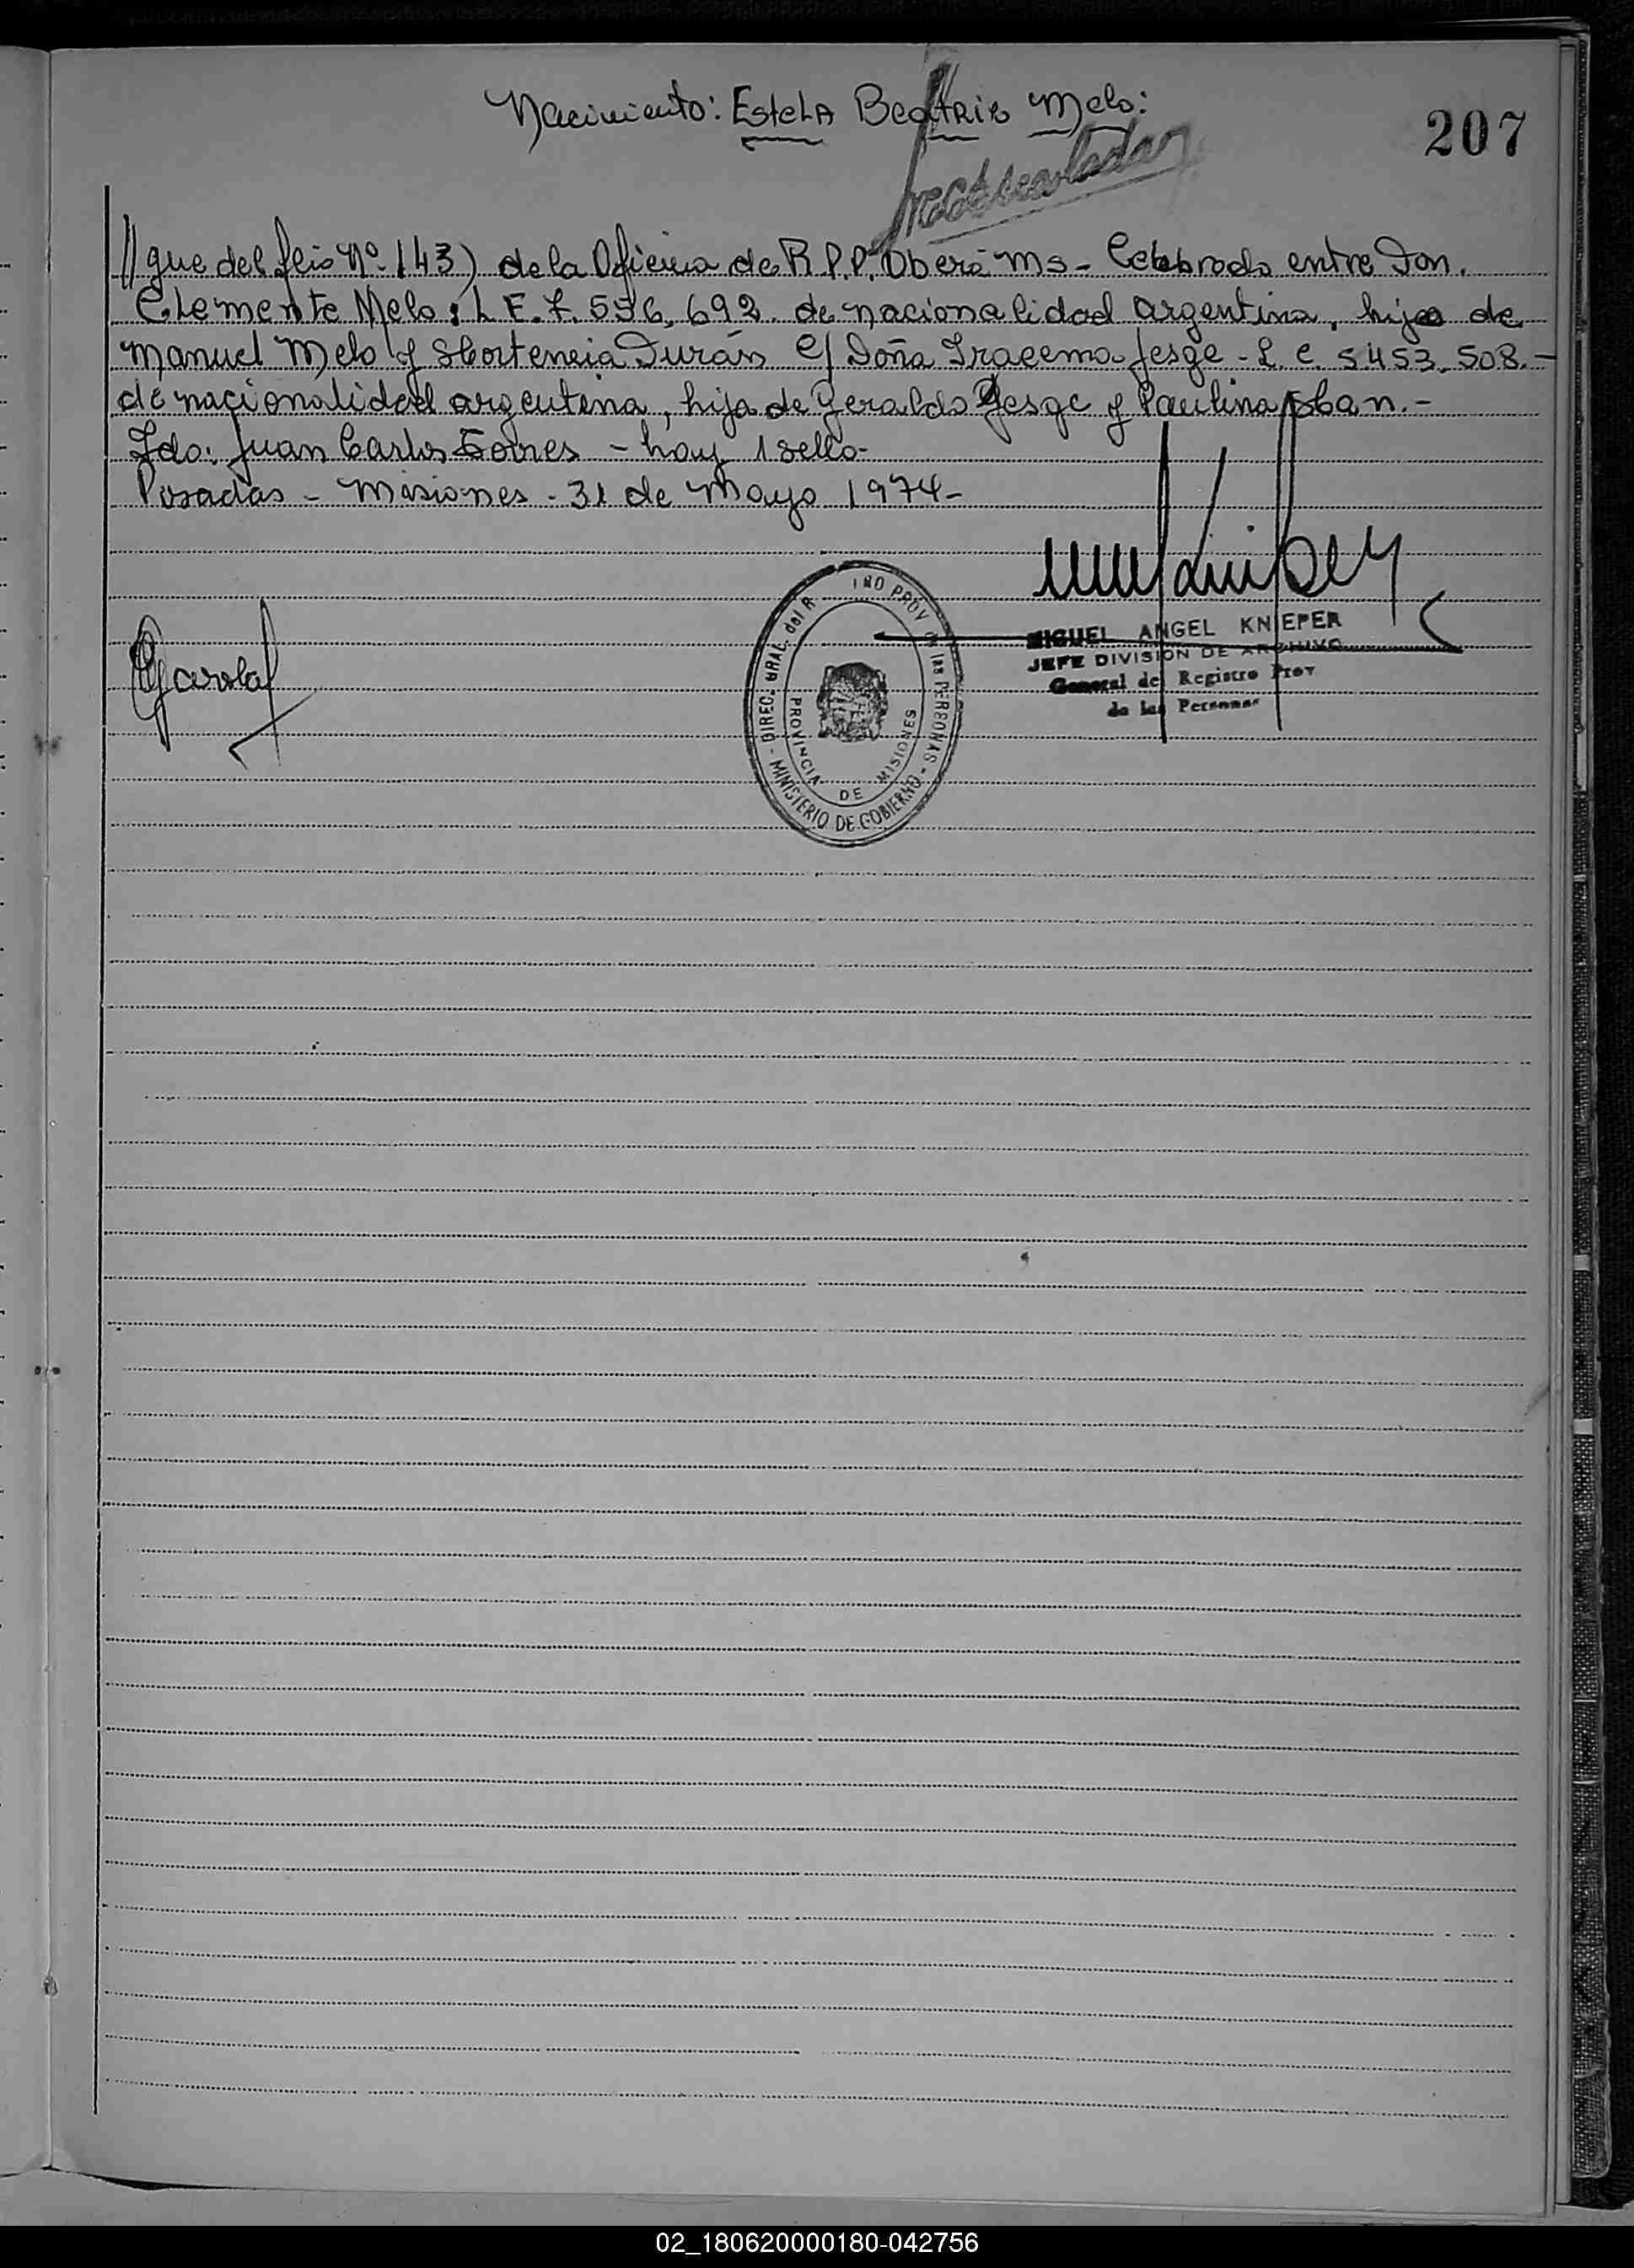 Nacimiento: Estela Beatriz Melo:
207
//gue del folio Nº 143) de la Oficina de R.P.P. Oberá Ms - Celebrado entre Don.
Clemente Melo; L E. 7.556,692. de nacionalidad argentina, hijo de
Manuel Melo y Hortencia Durán c/ Doña Iracema Jesge - L. C. 5.453.508.-
de nacionalidad argentina, hija de Geraldo Jesge y Paulina
Fdo: Juan Carlos Torres - hay 1 sello-
Posadas - Misiones - 31 de Mayo 1974-
MIGUEL ANGEL KNIEPER
JEFE DIVISION DE ARCHIVO
General del Registro Prov
de las Personas
DIREC. GRAL. del R. PROV de las PERSONAS
- MINISTERIO DE GOBIERNO -
PROVINCIA DE MISIONES
02_180620000180-042756